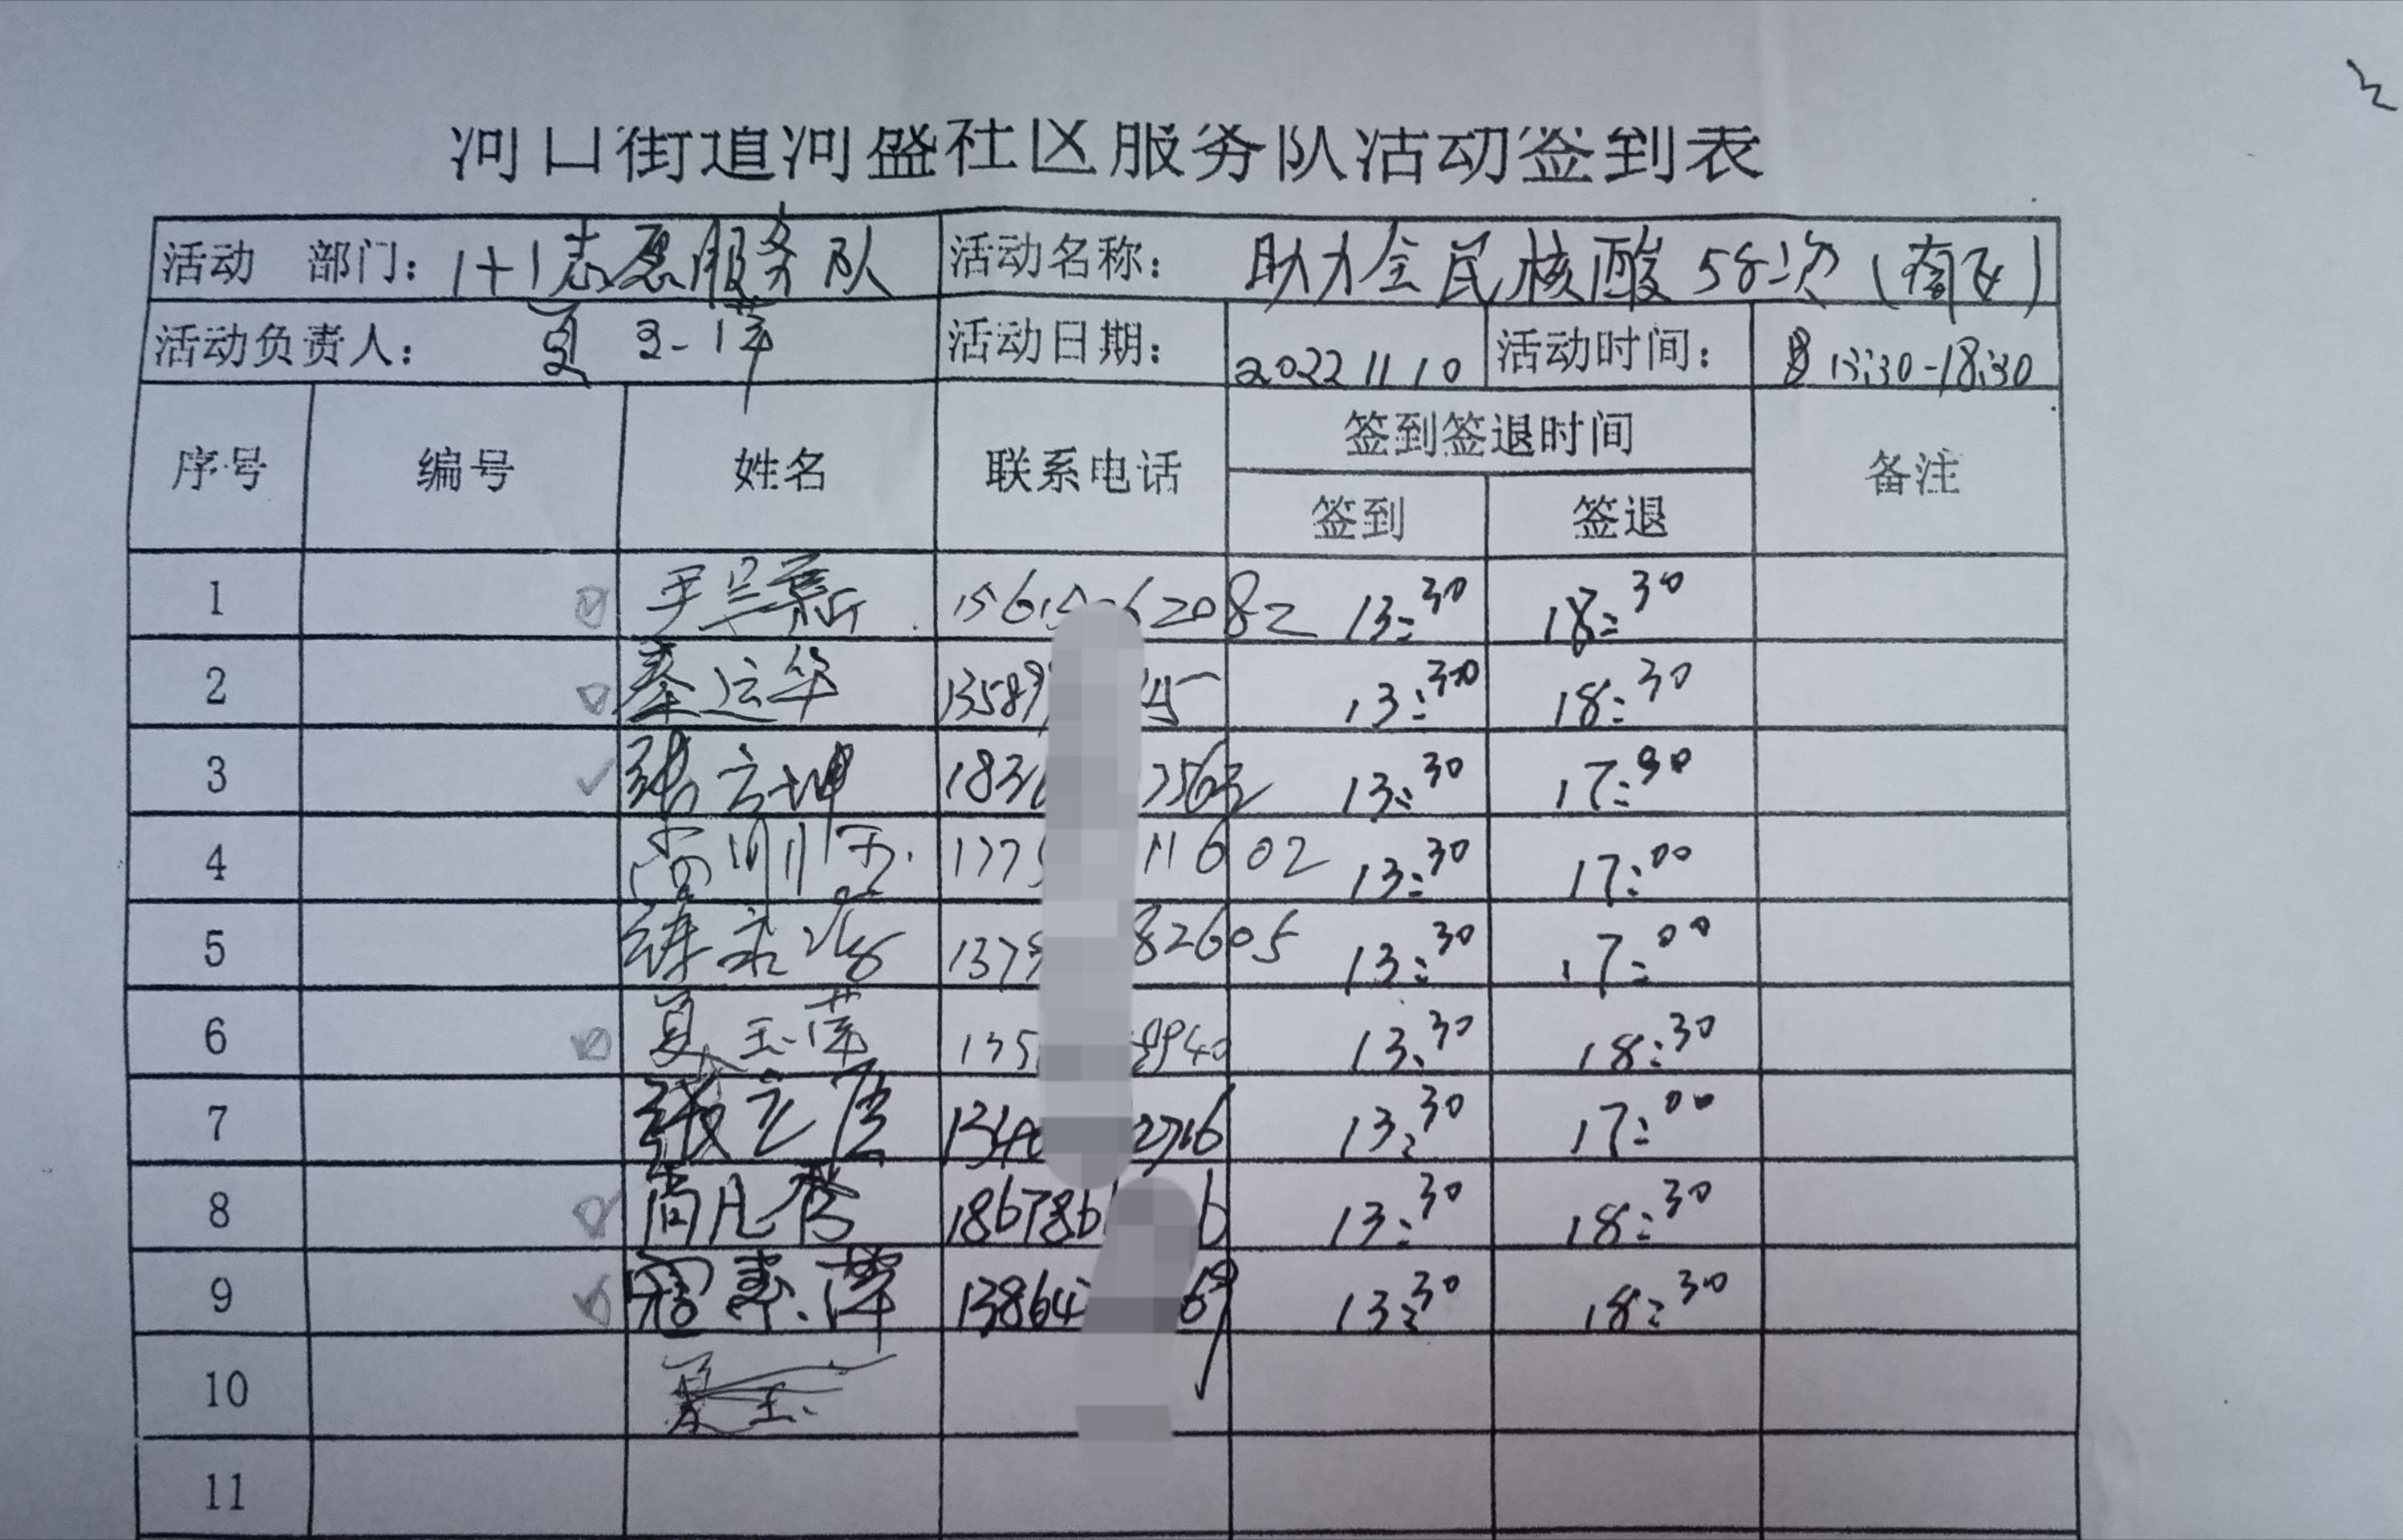 河口街道河盛社区服务队活动签到表
活动 部门：1+1志愿服务队 活动名称： 助力全民核酸58次（南区）
活动负责人： 夏玉萍 活动日期： 2022 11 10 活动时间： 13:30-18:30
序号 编号 姓名 联系电话 签到签退时间 备注
签到 签退
1 13:30 18:30
2 綦运华 13589 45 13:30 18:30
3 张云坤 1836 7563 13:30 17:30
4 1379 11602 13:30 17:00
5 1379 82605 13:30 17:00
6 夏玉萍 135 8940 13:30 18:30
7 张立 1340 2716 13:30 17:00
8 尚凡 186786 6 13:30 18:30
9 13864 69 13:30 18:30
10 夏玉
11